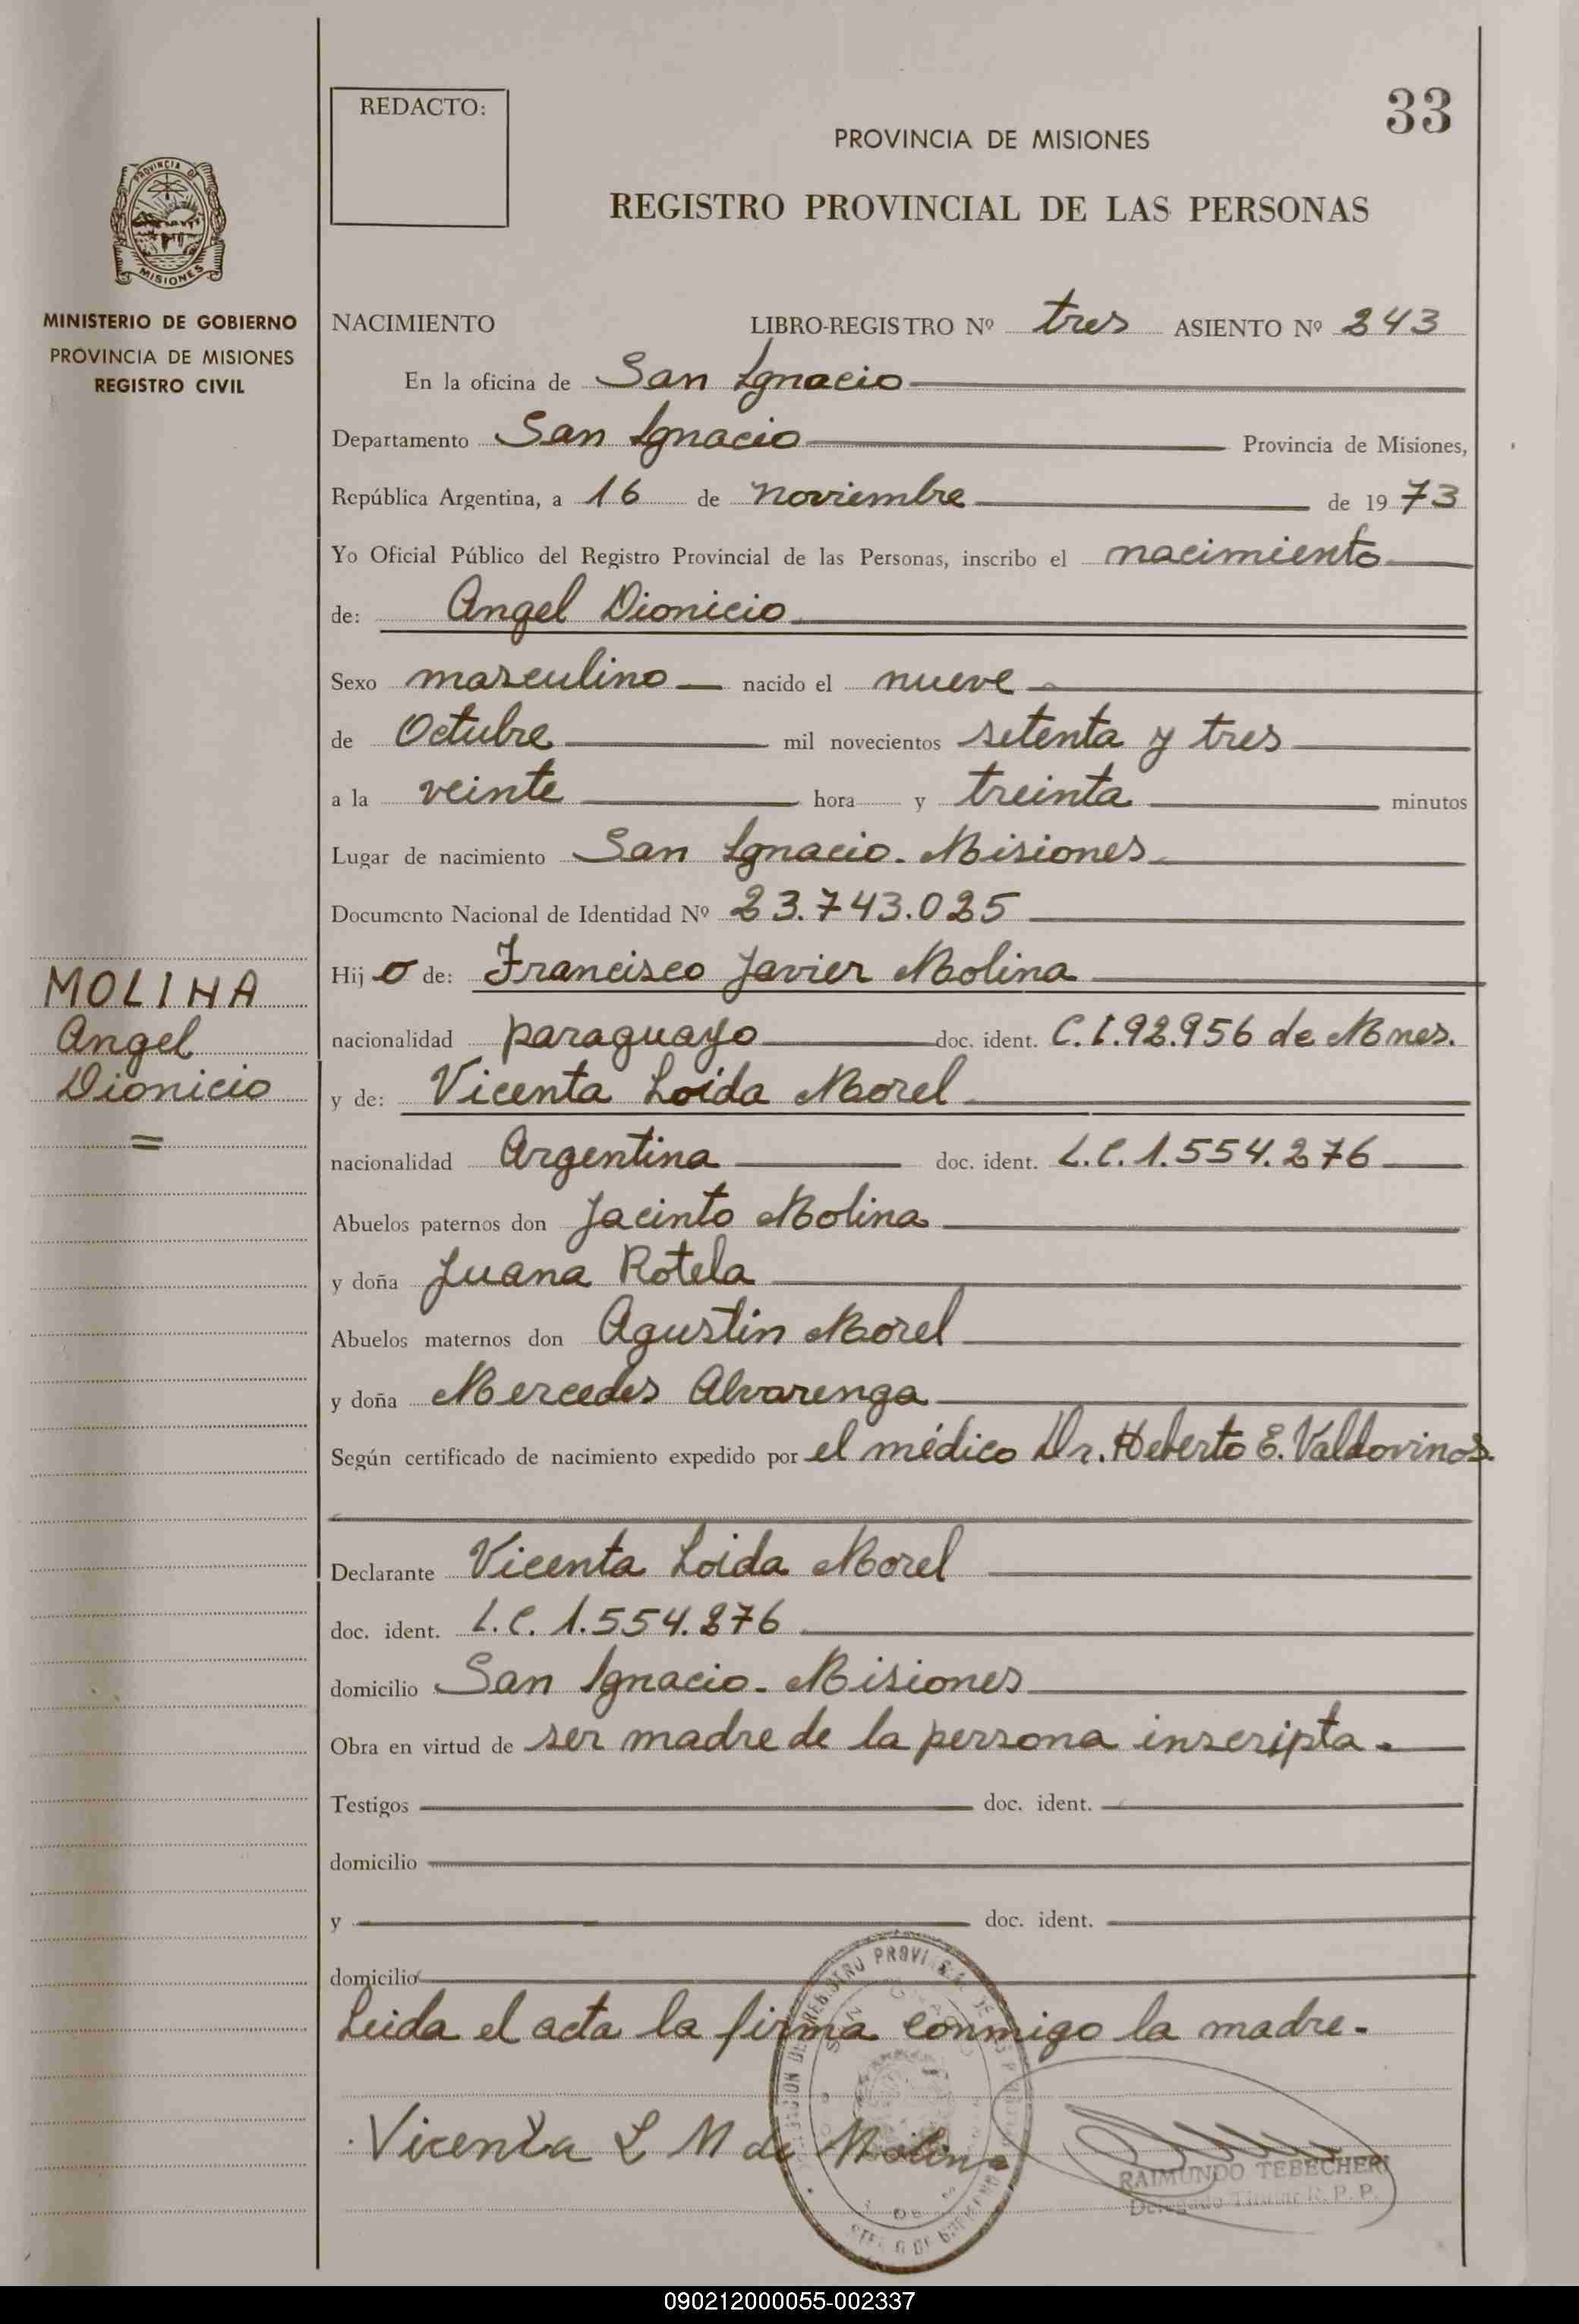 REDACTO:
33
PROVINCIA DE MISIONES
REGISTRO PROVINCIAL DE LAS PERSONAS
PROVINCIA DE
MISIONES
MINISTERIO DE GOBIERNO
PROVINCIA DE MISIONES
REGISTRO CIVIL
NACIMIENTO LIBRO-REGISTRO Nº tres ASIENTO Nº 243
En la oficina de San Ignacio
Departamento San Ignacio Provincia de Misiones,
República Argentina, a 16 de noviembre de 1973
Yo Oficial Público del Registro Provincial de las Personas, inscribo el nacimiento
de: Angel Dionicio
Sexo masculino nacido el nueve
de Octubre mil novecientos setenta y tres
a la veinte hora y treinta minutos
Lugar de nacimiento San Ignacio. Misiones
Documento Nacional de Identidad Nº 23.743.025
MOLINA
Angel
Dionicio
Hijo de: Francisco Javier Molina
nacionalidad paraguayo doc. ident. C.I.92.956 de Mnes.
y de: Vicenta Loida Morel
nacionalidad Argentina doc. ident. L.C. 1.554.276
Abuelos paternos don Jacinto Molina
y doña Juana Rotela
Abuelos maternos don Agustin Morel
y doña Mercedes Alvarenga
Según certificado de nacimiento expedido por el médico Dr. Heberto E. Valdovinos.
Declarante Vicenta Loida Morel
doc. ident. L.C. 1.554.276
domicilio San Ignacio - Misiones
Obra en virtud de ser madre de la persona inscripta.
Testigos doc. ident.
domicilio
y doc. ident.
domicilio
Leida el acta la firma conmigo la madre.
Vicenta L M de Molina
RAIMUNDO TEBECHERI
Delegado Titular R. P. P.
090212000055-002337